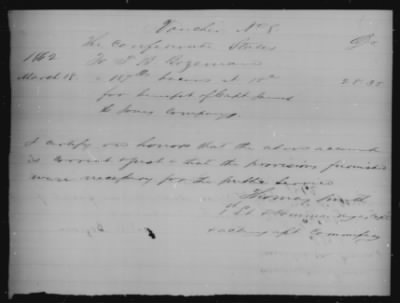 Voucher No 8
The Confederate States Dr
1862 To J. A. Bozeman
March 18 187 lbs bacon at 15c 28.05
for benefit of Capt James
Jones Company
I certify on honor that the above account
is correct & just & that the provisions furnished
were necessary for the public service
Thomas Smith
1 Lt &
& acting Company